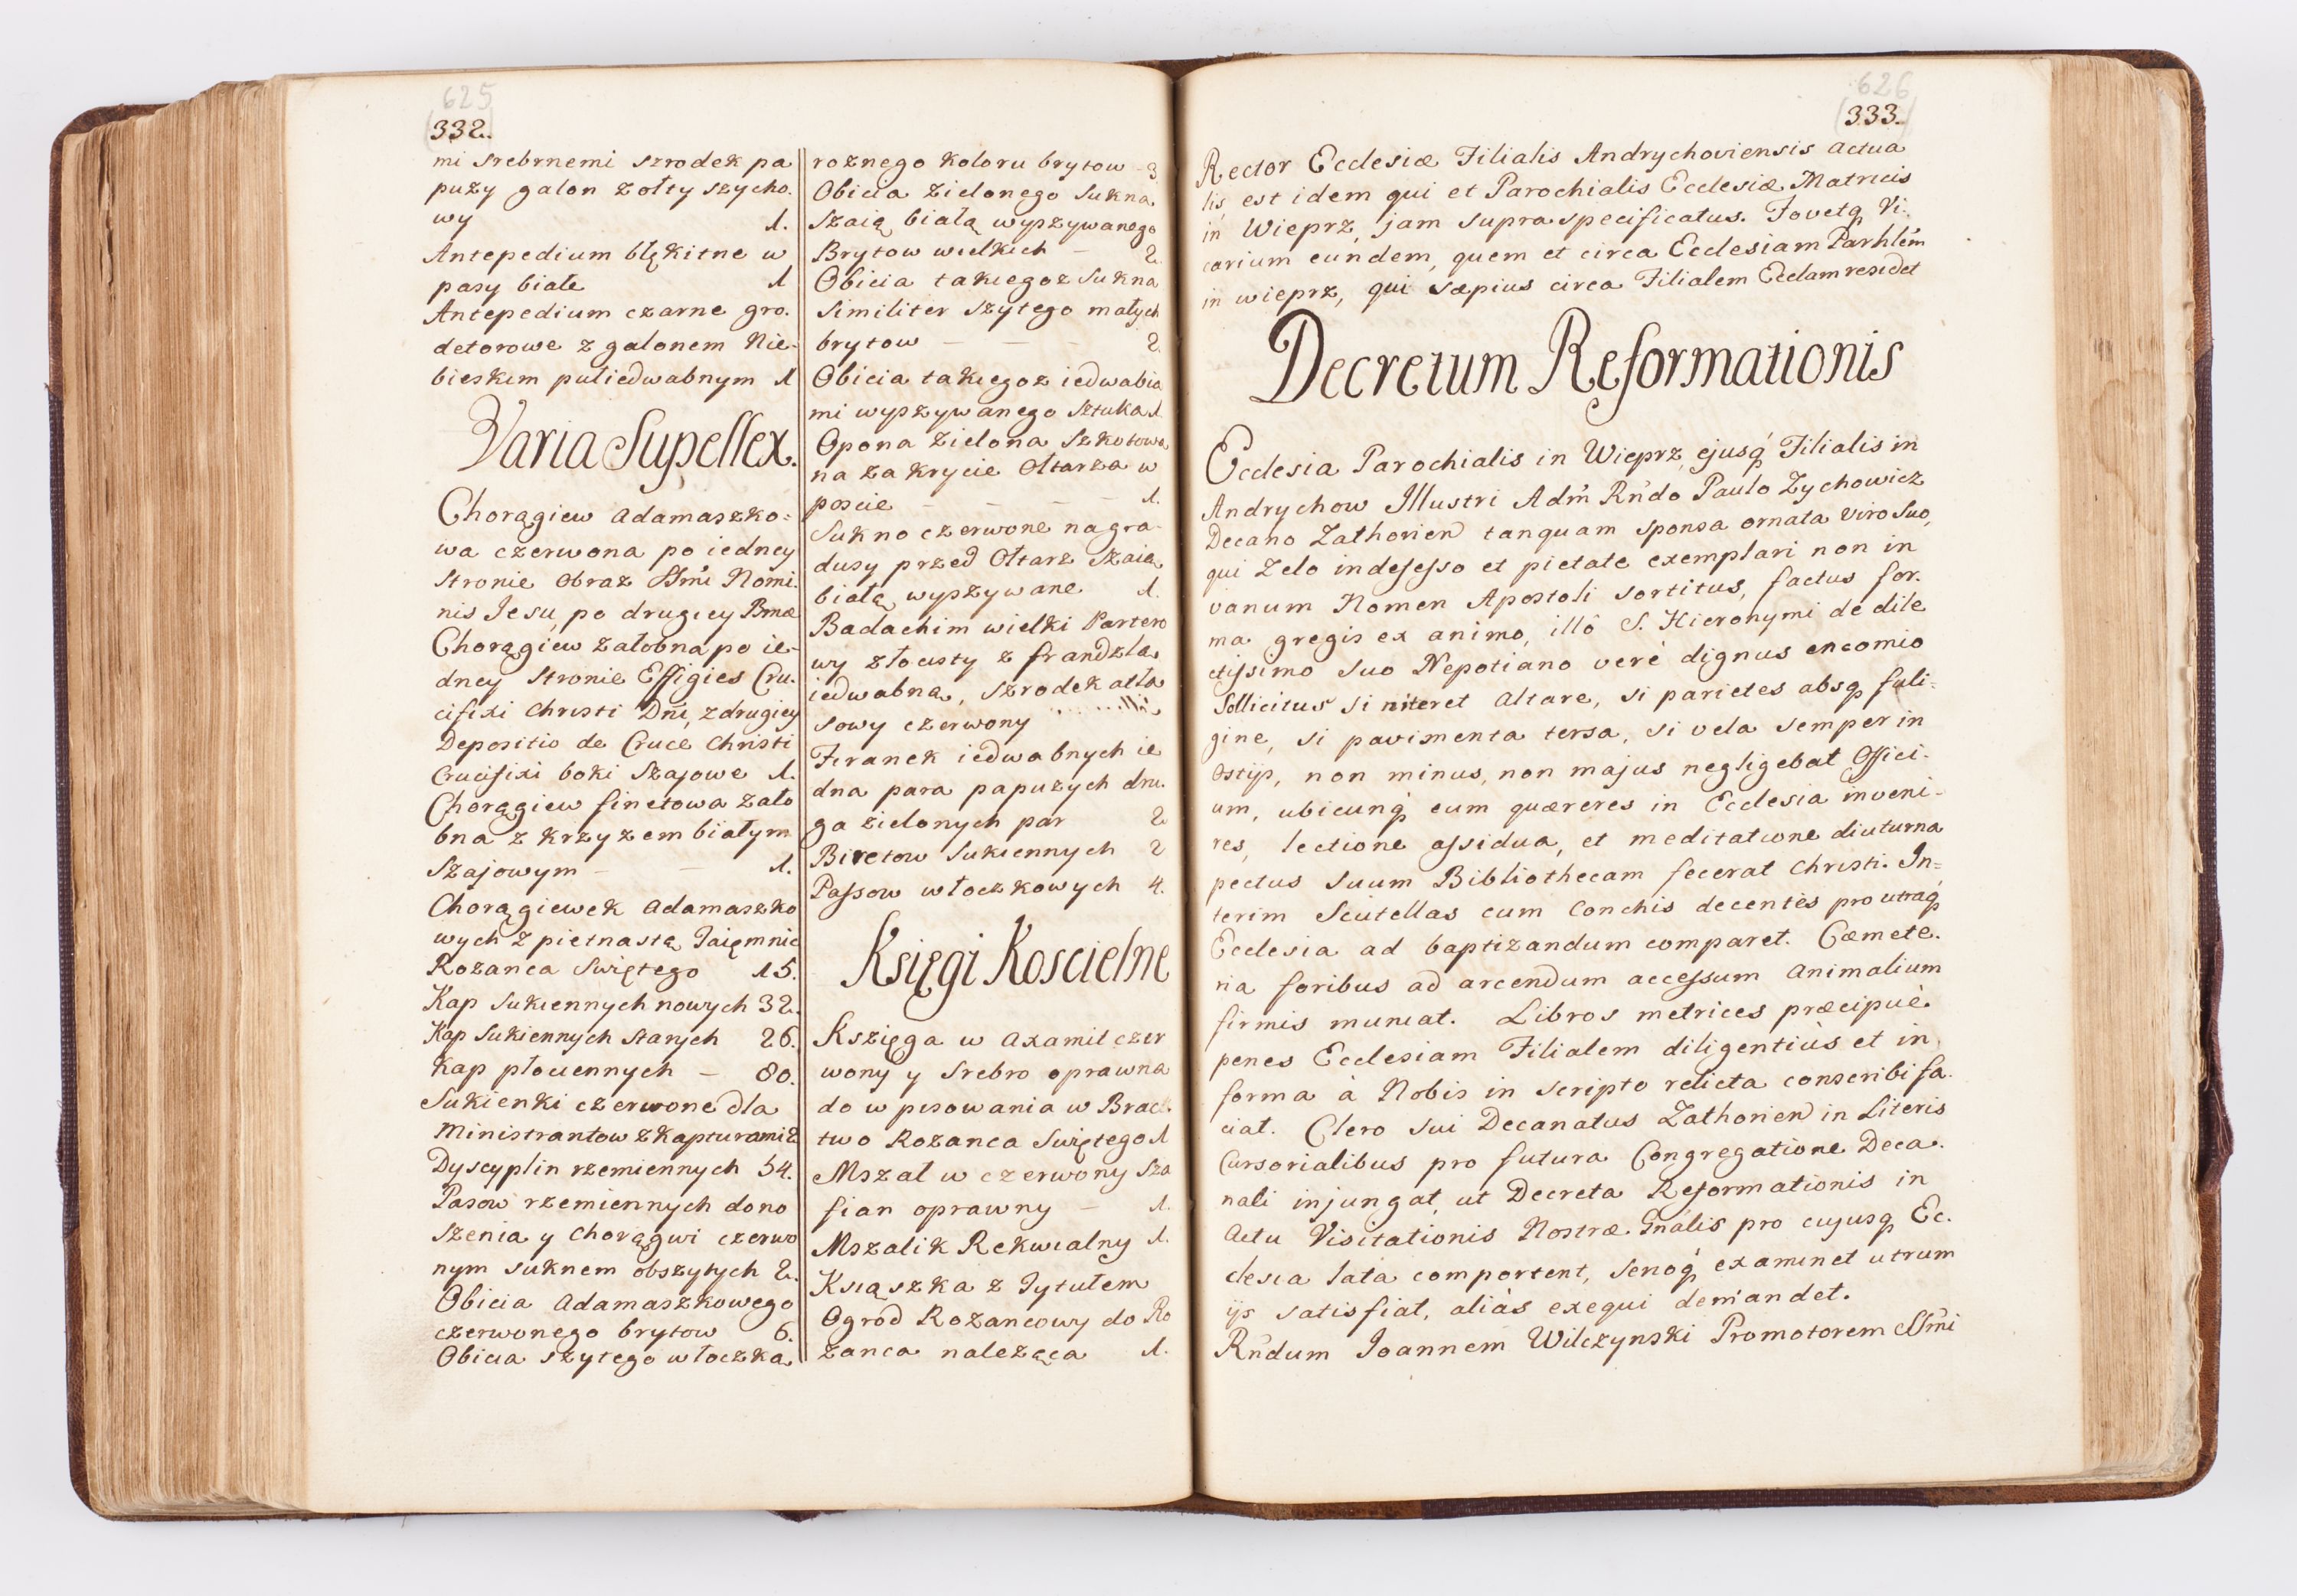 625
(332.
mi srebrnemi szrodek pa
puży galon żołty szycho.
wy 1.
Antepedium błękitne w
pasy białe 1
Antepedium czarne gro.
detorowe z galonem Nie-
bieskim puliedwabnym 1
Varia Supellex.
Chorągiew adamaszko=
wa czerwona po iedney
stronie Obraz SSmi Nomi.
nis Jesu, po drugiey Bmæ
Chorągiew załobna po ie-
dney stronie Effigies Cru.
cifixi Christi Dni, z drugiey
Depositio de Cruce Christi
Crucifixi boki Szajowe 1.
Chorągiew finetowa zało
bna z krzyżem białym
szajowym - - 1.
Chorągiewek adamaszko
wych z pietnastą Taięmnic
Rozanca Swiętego 15.
Kap sukiennych nowych 32.
Kap sukiennych starych 26.
Kap płociennych - 80.
Sukienki czerwone dla
Ministrantow z kapturami 2
Dyscyplin rzemiennych 54.
Pasow rzemiennych do no
szenia y Chorągwi czerwo
nym suknem obszytych 2.
Obicia adamaszkowego
czerwonego brytow 6.
Obicia szytego włoczką
roznego koloru brytow - 3
Obicia zielonego sukna
Szaią białą wyszywanego
Brytow wielkich - 2.
Obicia takiegoz sukna
similiter szytego małych
brytow - - - 2.
Obicia takiegoz iedwabia
mi wyszywanego sztuka 1
Opona zielona Szkotowa
na zakrycie Ołtarza w
poscie - - - - 1.
Sukno czerwone na gra-
dusy przed Ołtarz Szaią
białą wyszywane 1.
Badachim wielki Partero
wy złocisty z frandzlą
iedwabną, szrodek atła
sowy czerwony
Firanek iedwabnych ie
dna para papużych dru.
ga zielonych par 2
Biretow sukiennych 2
Passow włoczkowych 4.
Księgi Koscielne
Kszięga w axamit czer
wony y srebro oprawna
do wpisowania w Brac
two Rozanca Swiętego 1
Mszał w czerwony Sza
fian oprawny - 1.
Mszalik Rekwialny 1.
Książka z Tytułem
Ogród Rozancowy do Ro
zanca nalezaca 1.
626
(333.)
Rector Ecclesiæ Filialis Andrychoviensis actua
lis est idem qui et Parochialis Ecclesiæ Matricis
in Wieprz, jam supra specificatus. Fovetq Vi.
carium eundem, quem et circa Ecclesiam Parhlem
in wieprz, qui sæpius circa Filialem Ecclam residet
Decretum Reformationis
Ecclesia Parochialis in Wieprz ejusq Filialis in
Andrychow Illustri Adm Rndo Paulo Zychowicz
Decano Zathorien tanquam sponsa ornata viro suo,
qui zelo indefesso et pietate exemplari non in
vanum Nomen Apostoli sortitus, factus for.
ma gregis ex animo, illô S. Hieronymi de dile
ctissimo suo Nepotiano verè dignus encomio
Sollicitus si niteret altare, si parietes absq fuli-
gine, si pavimenta tersa, si vela semper in
Ostijs, non minus, non majus negligebat Offici-
um, ubicunq eum quæreres in Ecclesia inveni-
res, lectione assidua, et meditatione diuturna
pectus suum Bibliothecam fecerat Christi. In=
terim Scutellas cum Conchis decentes pro utraq
Ecclesia ad baptizandum comparet. Cæmete.
ria foribus ad arcendum accessum animalium
firmis muniat. Libros metrices præcipuè
penes Ecclesiam Filialem diligentiùs et in
forma à Nobis in scripto relicta conscribi fa.
ciat. Clero sui Decanatus Zathorien in Literis
Cursorialibus pro futura Congregatione Deca.
nali injungat, ut Decreta Reformationis in
actu Visitationis Nostræ Gnalis pro cujusq Ec.
clesia lata comportent, Senoq examinet utrum
ijs satisfiat, aliàs exequi demandet.
Rndum Joannem Wilczynski Promotorem SSmi